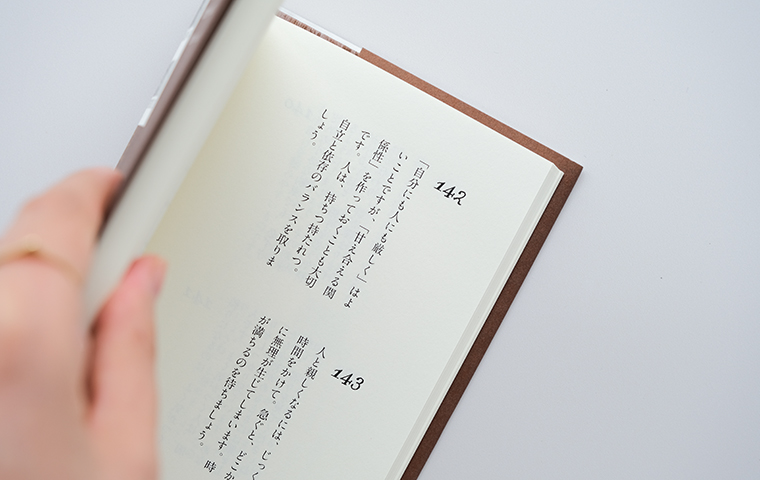 142
「自分にも人にも厳しく」はよ
いことですが、「甘え合える関
係性」を作っておくことも大切
です。人は、持ちつ持たれつ。
自立と依存のバランスを取りま
しょう。
143
人と親しくなるには、じっく
時間をかけて。急ぐと、どこか
に無理が生じてしまいます。時
が満ちるのを待ちましょう。